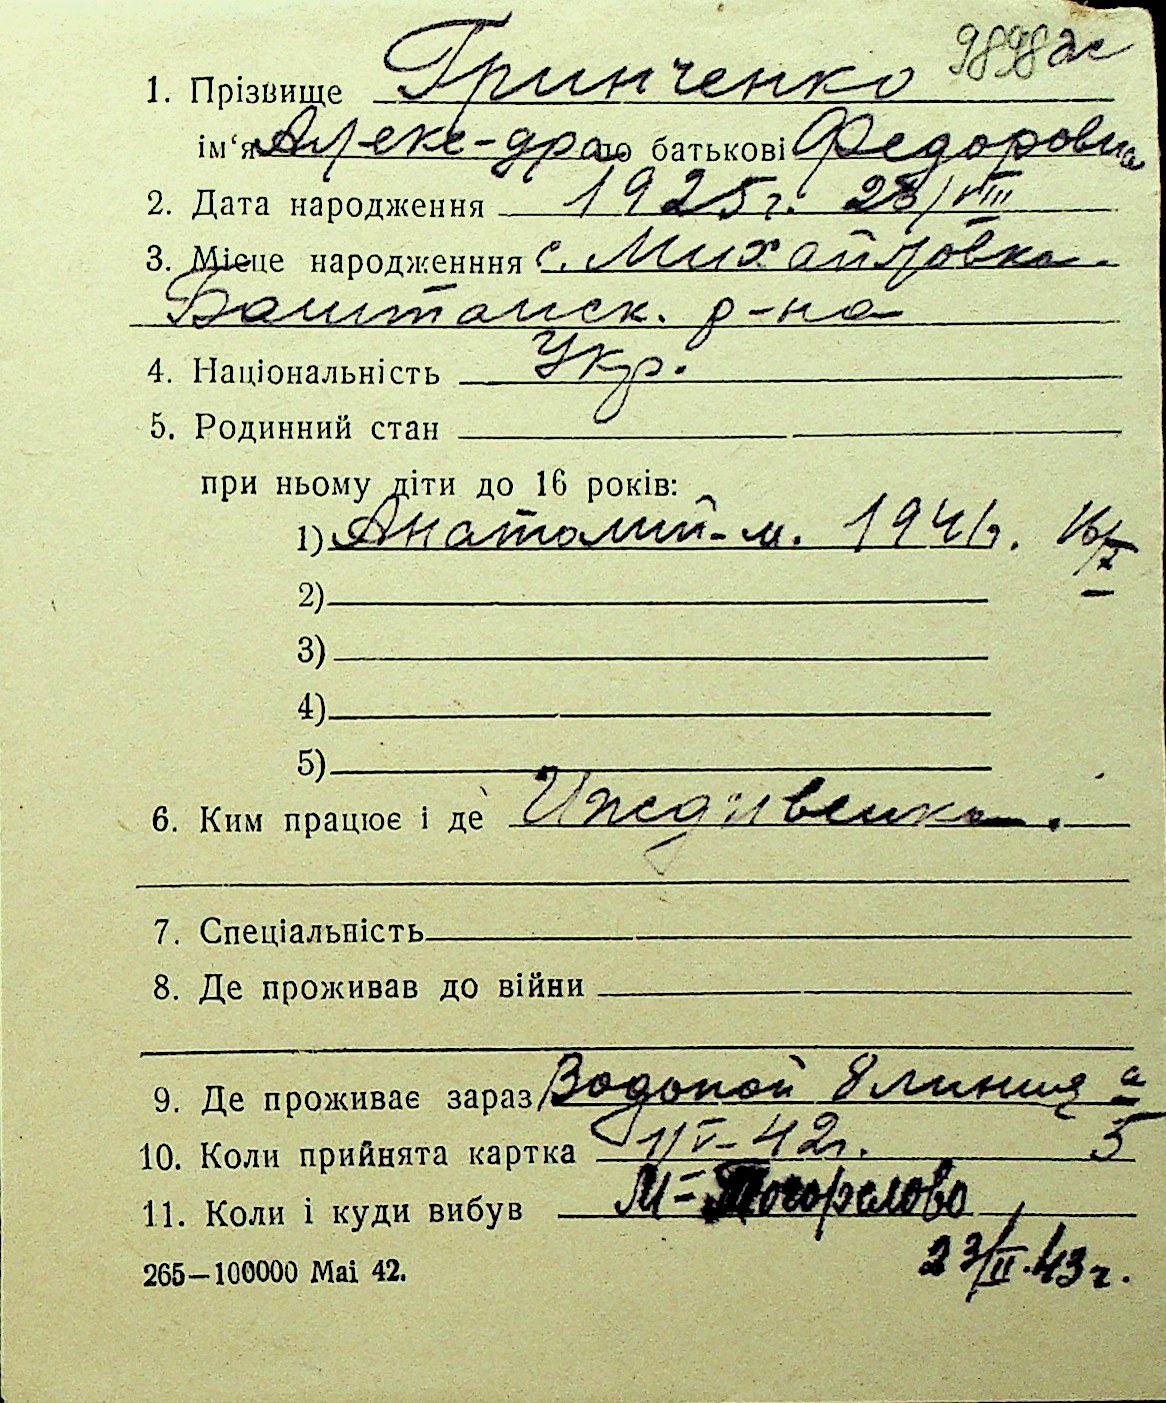 9898 ас
1. Прізвище Гринченко
ім‘я Алекс-дра по батькові Федоровна
2. Дата народження 1925г. 28/VIII
3. Місце народженння с. Михайловка.
Баштанск. р-на
4. Національність Укр.
5. Родинний стан
при ньому діти до 16 років:
1) Анатолий-м. 1941г. 16/X
2)
3)
4)
5)
6. Ким працює і де Иждивенка.
7. Спеціальність
8. Де проживав до війни
9. Де проживає зараз Водопой 8 линия а
10. Коли прийнята картка 1/V-42г. 5
11. Коли і куди вибув М-Погорелово
265—100000 Mai 42. 23/II.43г.